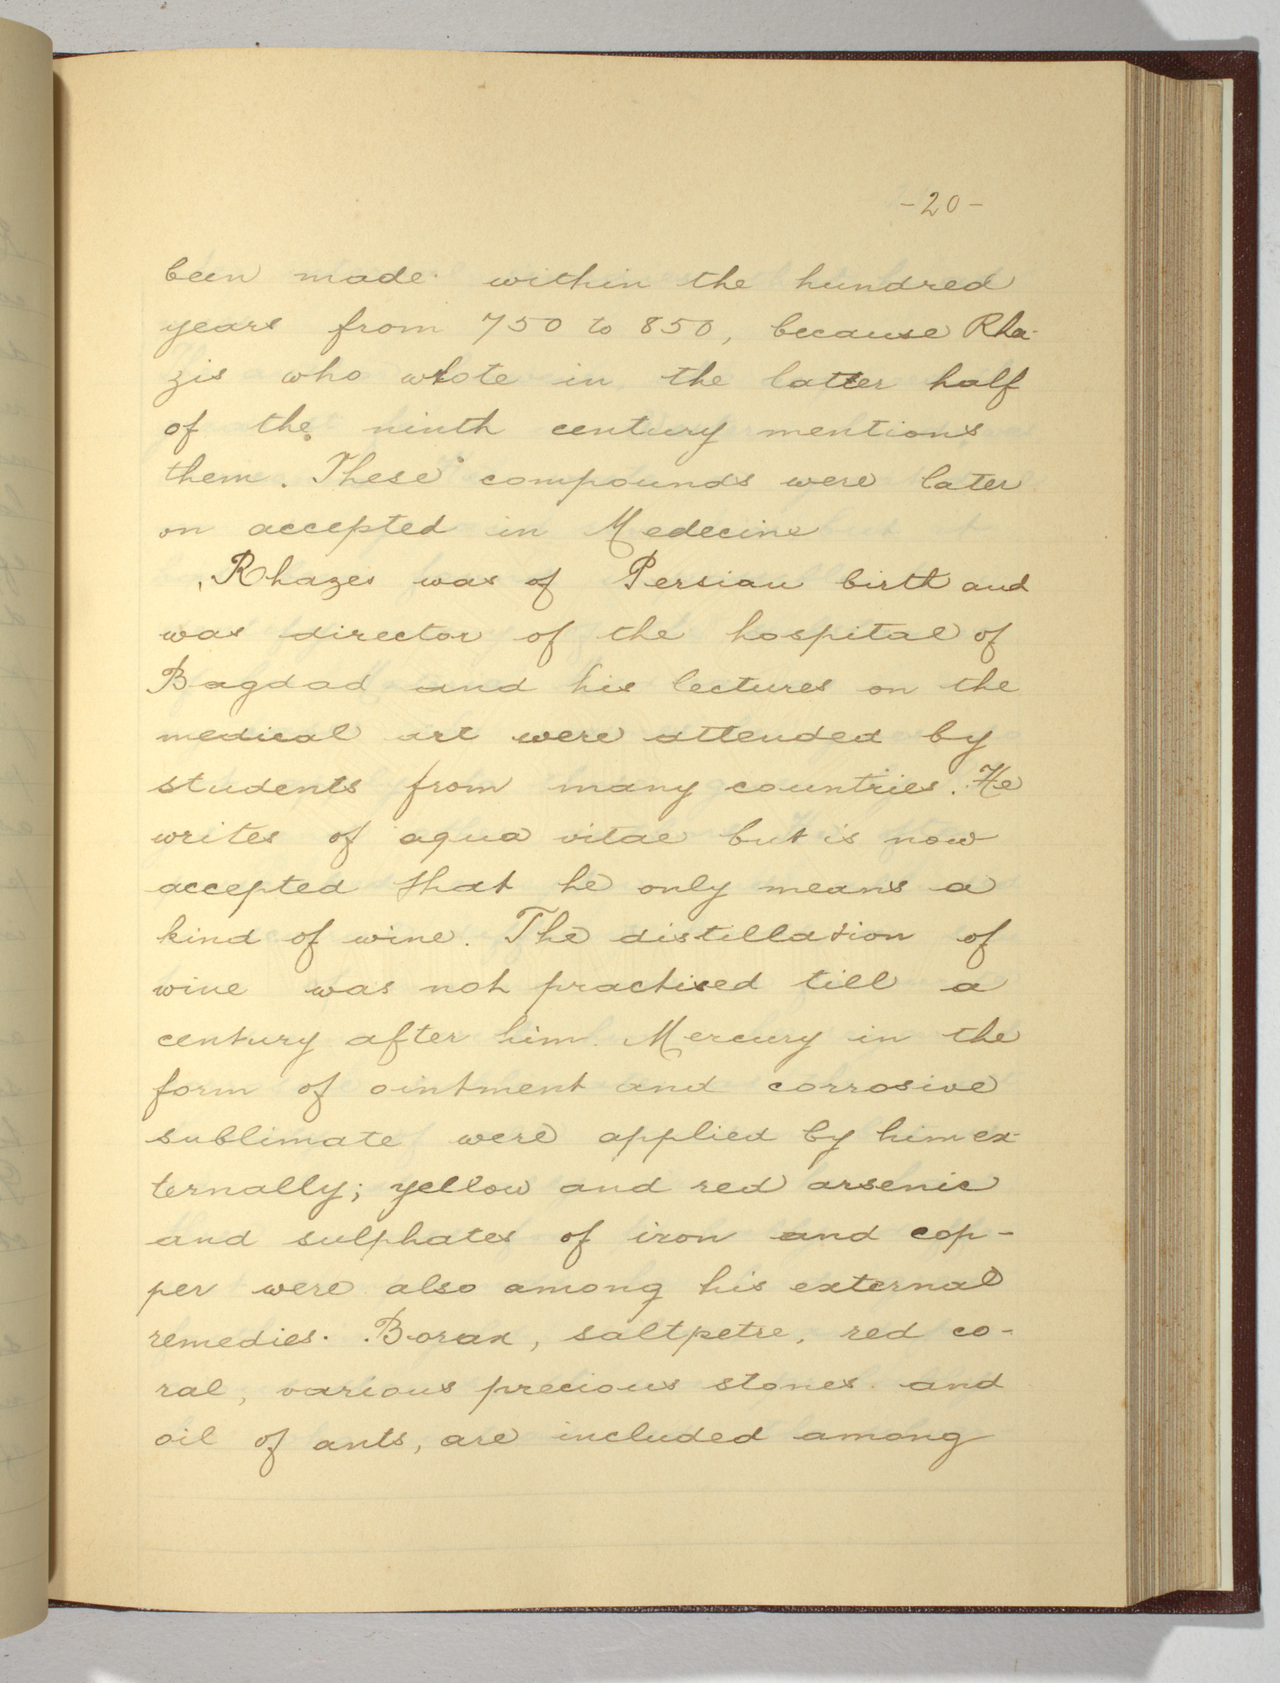 -20-
been made within the hundred
years from 750 to 850, because Rha-
zis who wrote in the latter half
of the ninth century mentions
them. These compounds were later
on accepted in Medecine
Rhazes was of Persian birth and
was director of the hospital of
Bagdad and his lectures on the
medical art were attended by
students from many countries. He
writes of aqua vitae but is now
accepted that he only means a
kind of wine. The distillation of
wine was not practised till a
century after him. Mercury in the
form of ointment and corrosive
sublimate were applied by him ex-
ternally; yellow and red arsenic
and sulphates of iron and cop-
per were also among his external
remedies. Borax, saltpetre, red co-
ral, various precious stones and
oil of ants, are included among